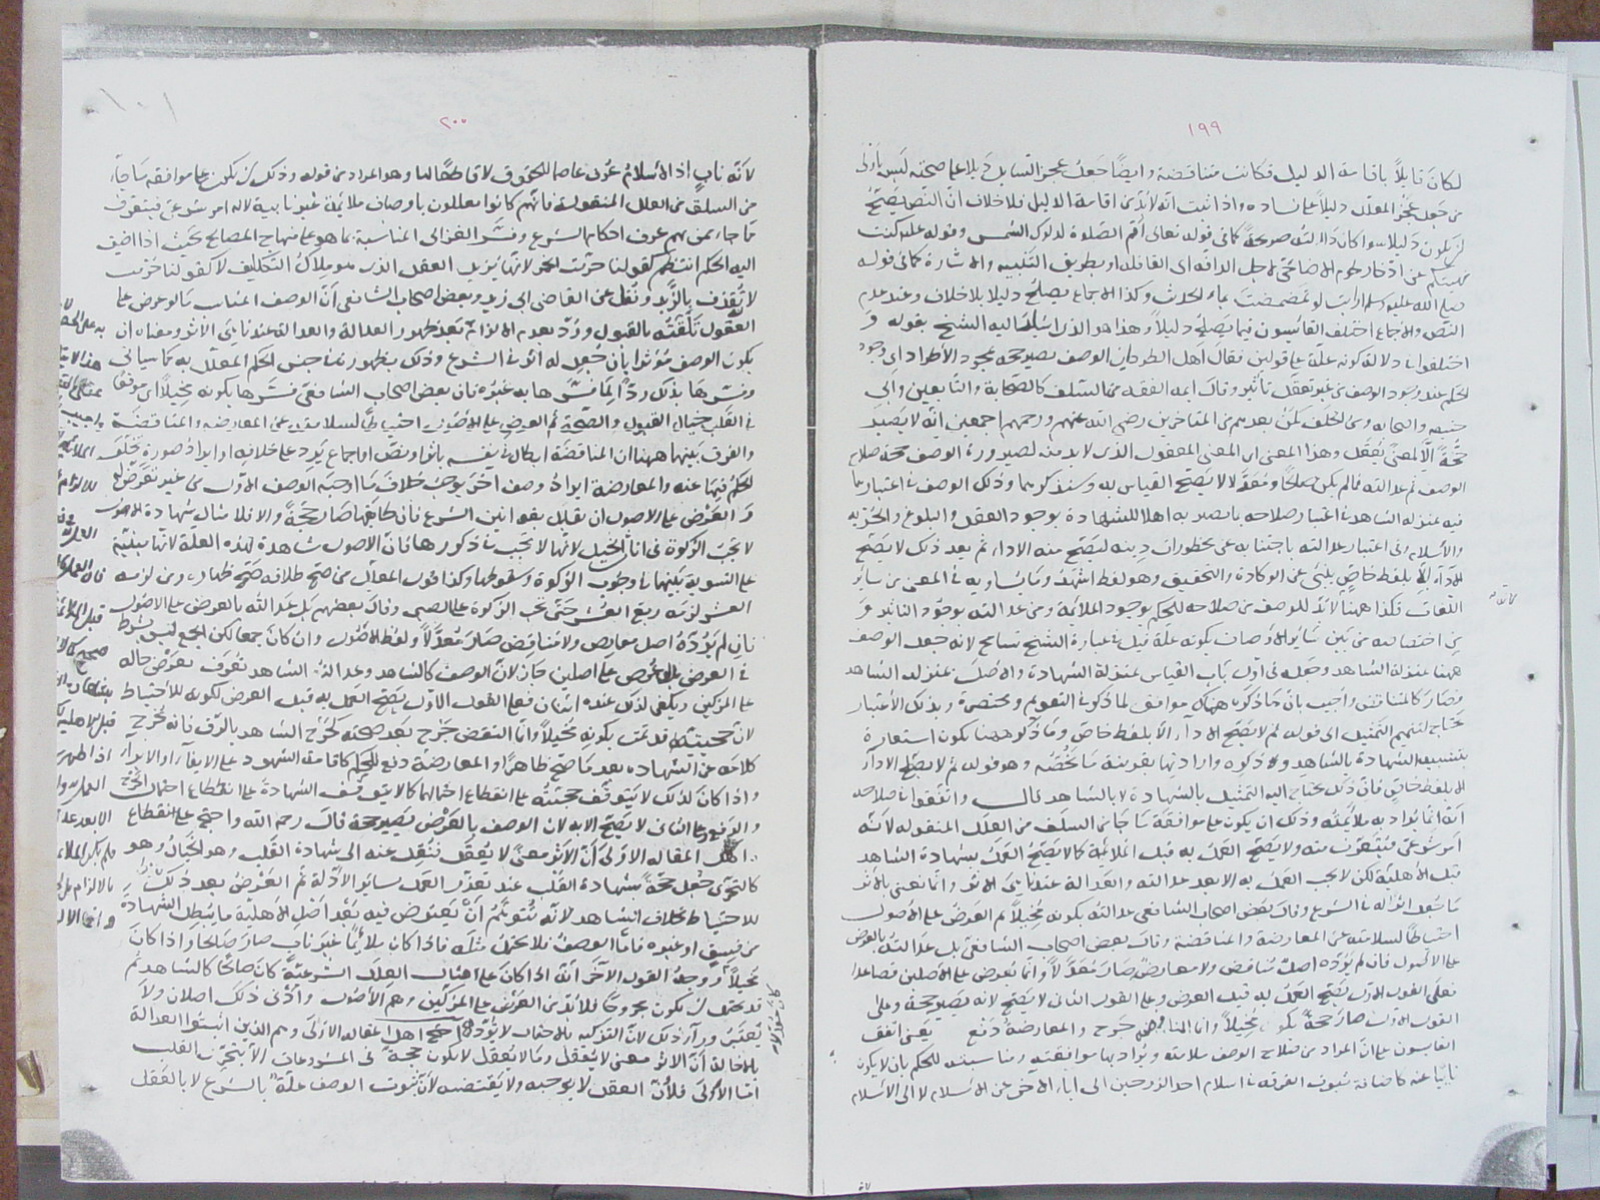 ١٩٩
لكان قابلاً باقامة الدليل فكانت متناقضة وايضا جعل عجز السايل دليلا على صحته ليس باولى
من جعل عجز المعلل دليلاً على فساده واذا ثبت انه لابد من اقامة الدليل فلا خلاف ان النص يصلح
ان يكون دليلا سواء كان دلالته صريحة كما في قوله تعالى اقم الصلوة لدلوك الشمس وقوله عليه كنت
نهيتكم عن ادخار لحوم الاضاحي لاجل الدافة اى القافلة او بطريق التنبيه والاشارة كما في قوله
صلى الله عليه وسلم ارايت لو تمضمضت بماء الحدث وكذا الاجماع يصلح دليلا بلا خلاف وعند عدم
النص والاجماع اختلف القائسون فيما يصلح دليلاً وهذا هو الذى اشار اليه الشيخ بقوله و
اختلفوا في دلالة كونه علة على قولين فقال اهل الطرد ان الوصف يصير حجة بمجرد الاطراد اى وجود
الحكم عند وجود الوصف من غير تعقل تاثير وقال ايمة الفقه من السلف كالصحابة والتابعين وابي
حنيفة واصحابه ومن الخلف كمن بعدهم من المتاخرين رضي الله عنهم ورحمهم اجمعين انه لا يصير
حجة الا بمعنى يعقل وهذا المعنى اى المعنى المعقول الذى لا بد منه لصيرورة الوصف حجة صلاح
الوصف ثم عدالته فالم يكن صالحا ومعدلا لا يصح القياس به وسنذكرهما وذلك الوصف في اعتبارهما
فيه بمنزلة الشاهد في اعتبار صلاحه بما يصير به اهلا للشهادة بوجود العقل والبلوغ والحرية
والاسلام وفي اعتبار عدالته باجتنابه عن محظورات دينه ليصح منه الاداء ثم بعد ذلك لا يصح
الاداء الا بلفظ خاص ينبئ عن الوكادة والتحقيق وهو لفظ اشهد وما يساويه في المعنى من سائر
اللغات فكذا ههنا لابد للوصف من صلاحه للحكم بوجود الملائمة ومن عدالته بوجود التاثير و
من اختصاصه من بين سائر الاوصاف بكونه علة قيل في عبارة الشيخ تسامح لانه جعل الوصف
ههنا بمنزلة الشاهد وجعله في اول باب القياس بمنزلة الشهادة والاصل بمنزلة الشاهد
فصار كالمتناقض واجيب بان ما ذكره هناك موافق لما ذكر في التقويم ومختصره وبذلك الاعتبار
يحتاج لتتميم التمثيل الى قوله ثم لا يصح الاداء الا بلفظ خاص وما ذكر ههنا يكون استعارة
بلفظ خاص فان ذلك يحتاج اليه التمثيل بالشهادة لا بالشاهد قال واتفقوا في صلاحه
انه انما يراد به ملائمته وذلك ان يكون على موافقة ما جاء عن السلف من العلل المنقولة لانه
امر شرعي فيتعرف منه ولا يصح العمل به قبل الملائمة كما لا يصح العمل بشهادة الشاهد
قبل الاهلية لكن لا يجب العمل به الا بعد عدالته والعدالة عندنا هي الاثر وانما نعني بالاثر
ما جعل اثر له في الشرع وقال بعض اصحاب الشافعي عدالته بكونه مخيلا ثم العرض على الاصول
احتياطا لسلامته عن المعارضة والمناقضة وقال بعض اصحاب الشافعي بل عدالته بالعرض
على الاصول فان لم يرده اصل مناقض ولا معارض صار معدلا وانما يعرض على اصلين فصاعدا
فعلى القول الاول يصح العمل به قبل العرض وعلى القول الثاني لا يصح لانه يصير حجة وعلى
القول الاول صار حجة بكونه مخيلا وانما المناقضة جرح والمعارضة دفع يعني اتفق
القايسون على ان المراد من صلاح الوصف ملائمته ويراد بها موافقته ومناسبته للحكم بان لا يكون
نابيا عنه كاضافة ثبوت الفرقة في اسلام احد الزوجين الى اباء الاخر عن الاسلام لا الى الاسلام
٢٠٠
لانه ناب اذ الاسلام عرف عاصما للحقوق لا قاطعا لها وهو المراد من قوله وذلك ان يكون على موافقة ما جاء
من السلف من العلل المنقولة فانهم كانوا يعللون باوصاف ملائمة غير نابية لانه امر شرعي فيتعرف
مما جاء عمن بهم عرف احكام الشرع وفسر الغزالي المناسبة بما هو على منهاج المصالح بحيث اذا اضيف
اليه الحكم انتظم كقولنا حرمت الخمر لانها يزيل العقل الذى هو ملاك التكليف لا كقولنا حرمت
لانها تقذف بالزبد ونقل عن القاضي ابي زيد وبعض اصحاب الشافعي ان الوصف المناسب ما لو عرض على
العقول تلقته بالقبول ورد بعدم الالزام بعد ظهور العدالة والعدالة عندنا هي الاثر ومعناه ان
يكون الوصف مؤثرا بان جعل له اثر في الشرع وذلك بظهور في جنس الحكم المعلل به كما سياتي
وفسرها بذلك ردا لما فسرها به غيره فان بعض اصحاب الشافعي فسرها بكونه مخيلا اى موقعا
في القلب خيال القبول والصحة ثم العرض على الاصول احتياطا لسلامته عن المعارضة والمناقضة
والفرق بينهما ههنا ان المناقضة ابطال نفسه باثر او نص او اجماع يرد على خلافه او ايراد صورة تخلف
الحكم فيها عنه والمعارضة ايراد وصف اخر يوجب خلاف ما اوجبه الوصف الاول من غير تعرض له
والعرض على الاصول ان يقابل بقوانين الشرع فان طابقها صار حجة والا فلا مثال شهادة الاصول
لا تجب الزكوة في اناث الخيل لانها لا تجب في ذكورها فان الاصول شاهدة لهذه العلة لانها مبنية
على التسوية بينهما في وجوب الزكوة وسقوطها وكذا قول المعلل من صح طلاقه صح ظهاره ومن لزمه
العشر لزمه ربع العشر حتى تجب الزكوة على الصبي وقال بعضهم بل عدالته بالعرض على الاصول
فان لم يرده اصل معارض ولا مناقض صار معدلا ولفظ الاصول وان كان جمعا لكن الجمع ليس بشرط
في العرض بل لو عرض على اصلين جاز لان الوصف كالشاهد وعدالة الشاهد تعرف بعرض حاله
على المزكين ويكفي لذلك عنده اثنان فعلى القول الاول يصح العمل به قبل العرض لكونه للاحتياط
لان حجيته قد تمت بكونه مخيلا وانما النقض جرح بعد صحته كجرح الشاهد بالرق فانه يخرج
كلامه من الشهادة بعد ما صح ظاهرا والمعارضة دفع للحكم كاقامة الشهود على الايفاء او الابراء
واذا كان كذلك لا يتوقف حجيته على انقطاع احتمالهما كما لا يتوقف الشهادة على انقطاع احتمال الجرح
والدفع وعلى الثاني لا يصح الا به لان الوصف بالعرض يصير حجة قال رحمه الله واحتج على انقطاع
اهل المقالة الاولى ان الاثر معنى لا يعقل فنقل عنه الى شهادة القلب وهو الخيال وهو
كالتحرى جعل حجة شهادة القلب عند تعذر العمل بسائر الادلة ثم العرض بعد ذلك
للاحتياط بخلاف الشاهد لانه يتوهم ان يعترض فيه بعد اصل الاهلية ما يبطل الشهادة
من فسق او غيره فاما الوصف فلا يحتمل مثله فاذا كان ملائما غير ناب صار صالحا واذا كان
مخيلا وجه القول الاخر انه اذا كان على امثال العلل الشرعية كان صالحا كالشاهد ثم
قد يحتمل ان يكون مجروحا فلا بد من العرض على المزكين وهم الاصول وادنى ذلك اصلان ولا
يعتبر وراء ذلك لان التزكية بالاحتمال لا يرد احتج اهل المقالة الاولى وهم الذين اثبتوا العدالة
بالاخالة ان الاثر معنى لا يعقل وما لا يعقل لا يكون حجة في المشروعات الا بتحرى القلب
اما الاولى فلان العقل لا يوجبه ولا يقتضيه لان ثبوت الوصف علة بالشرع لا بالعقل